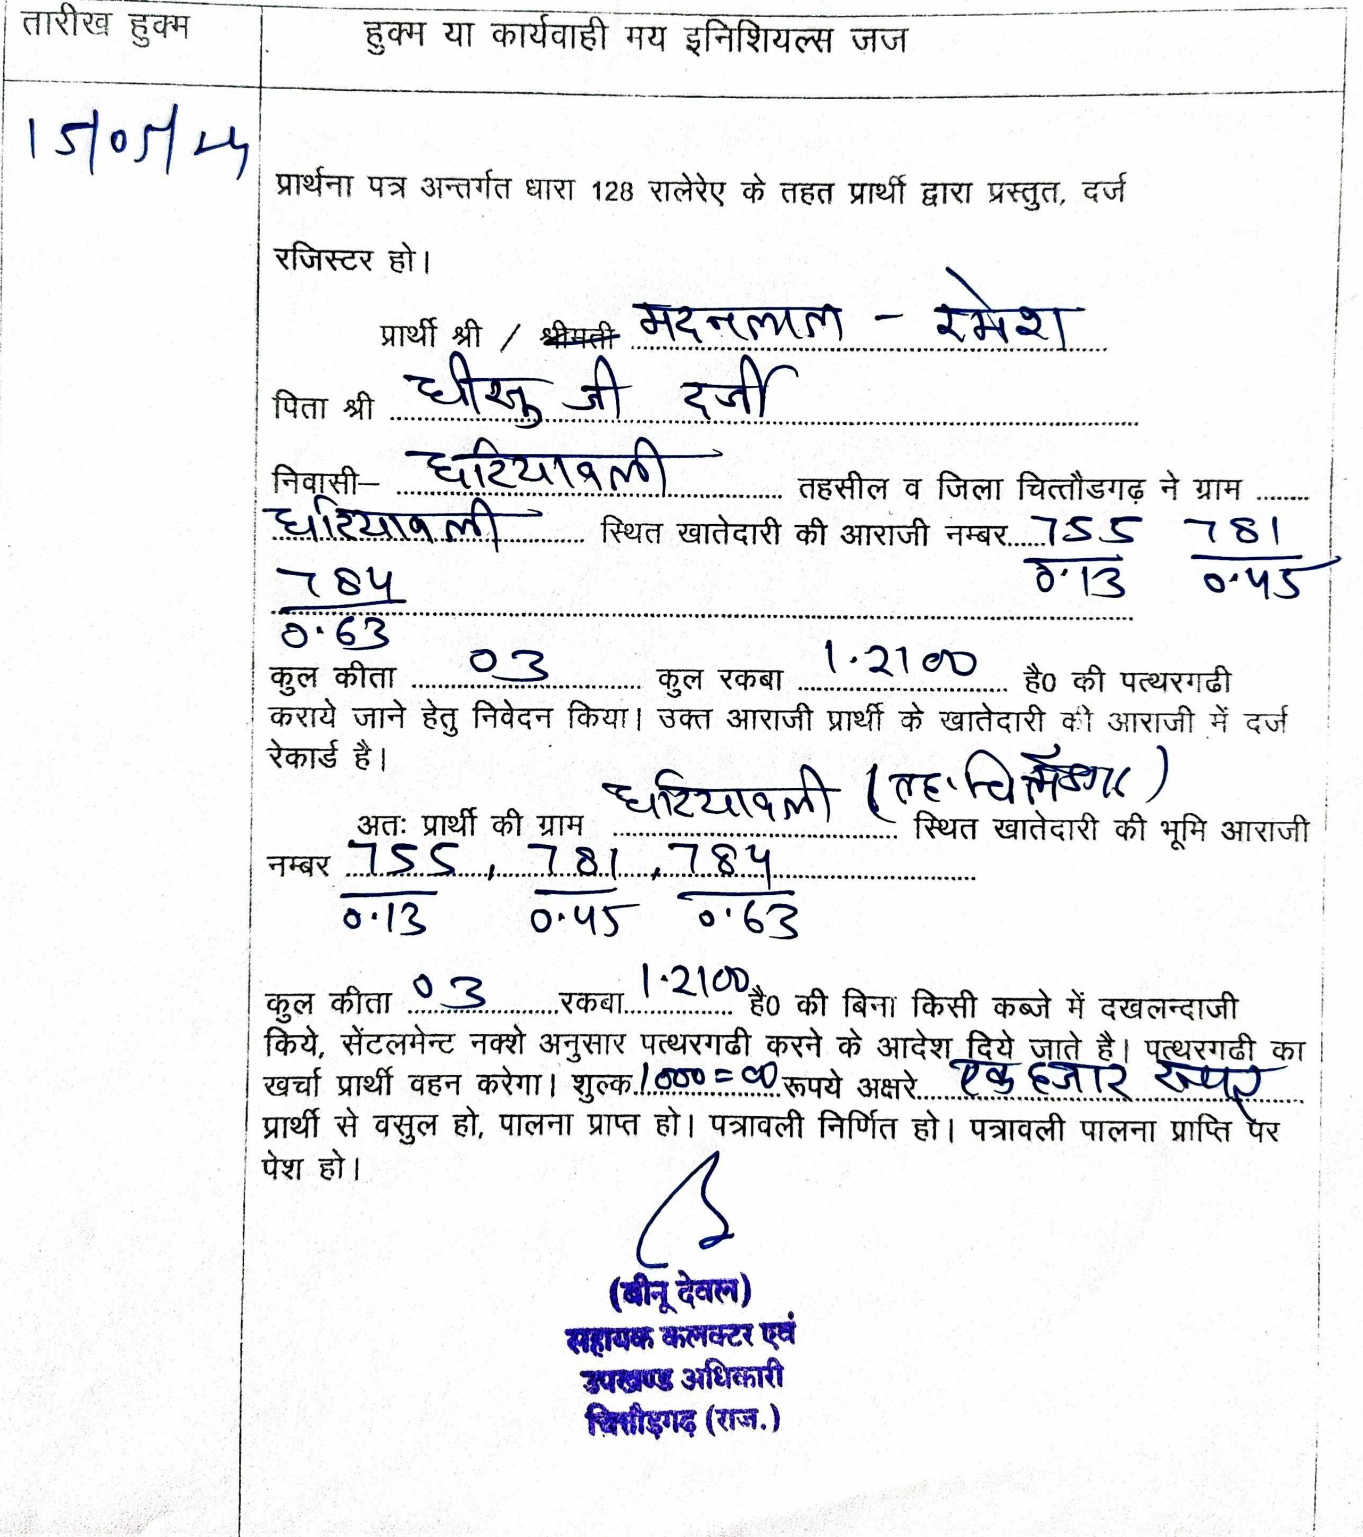 तारीख हुक्म
हुक्म या कार्यवाही मय इनिशियल्स जज
15/05/25
प्रार्थना पत्र अन्तर्गत धारा 128 रालेरेए के तहत प्रार्थी द्वारा प्रस्तुत, दर्ज
रजिस्टर हो।
प्रार्थी श्री / श्रीमती मदनलाल - रमेश
पिता श्री घीसु जी दर्जी
निवासी– घटियावली तहसील व जिला चित्तौडगढ़ ने ग्राम ........
घटियावली स्थित खातेदारी की आराजी नम्बर 755 781
0.13 0.45
784
0.63
कुल कीता 03 कुल रकबा 1.2100 है0 की पत्थरगढी
कराये जाने हेतु निवेदन किया। उक्त आराजी प्रार्थी के खातेदारी की आराजी में दर्ज
रेकार्ड है।
अतः प्रार्थी की ग्राम घटियावली (तह. चित्तौडगढ) स्थित खातेदारी की भूमि आराजी
नम्बर 755, 781, 784
0.13 0.45 0.63
कुल कीता 03 रकबा 1.2100 है0 की बिना किसी कब्जे में दखलन्दाजी
किये, सेंटलमेन्ट नक्शे अनुसार पत्थरगढी करने के आदेश दिये जाते है। पत्थरगढी का
खर्चा प्रार्थी वहन करेगा। शुल्क 1000=00 रूपये अक्षरे एक हजार रूपए
प्रार्थी से वसुल हो, पालना प्राप्त हो। पत्रावली निर्णित हो। पत्रावली पालना प्राप्ति पर
पेश हो।
(बीनू देवल)
सहायक कलक्टर एवं
उपखण्ड अधिकारी
चित्तौड़गढ़ (राज.)